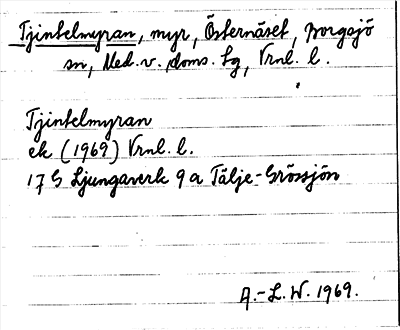 Tjintelmyran, myr, Östernäset, Borgsjö
sn, Med. v. doms. lg, Vrnl. l.
Tjintelmyran
ek (1969) Vrnl. l.
17 G Ljungaverk 9 a Tälje-Grössjön
A.-L. W. 1969.